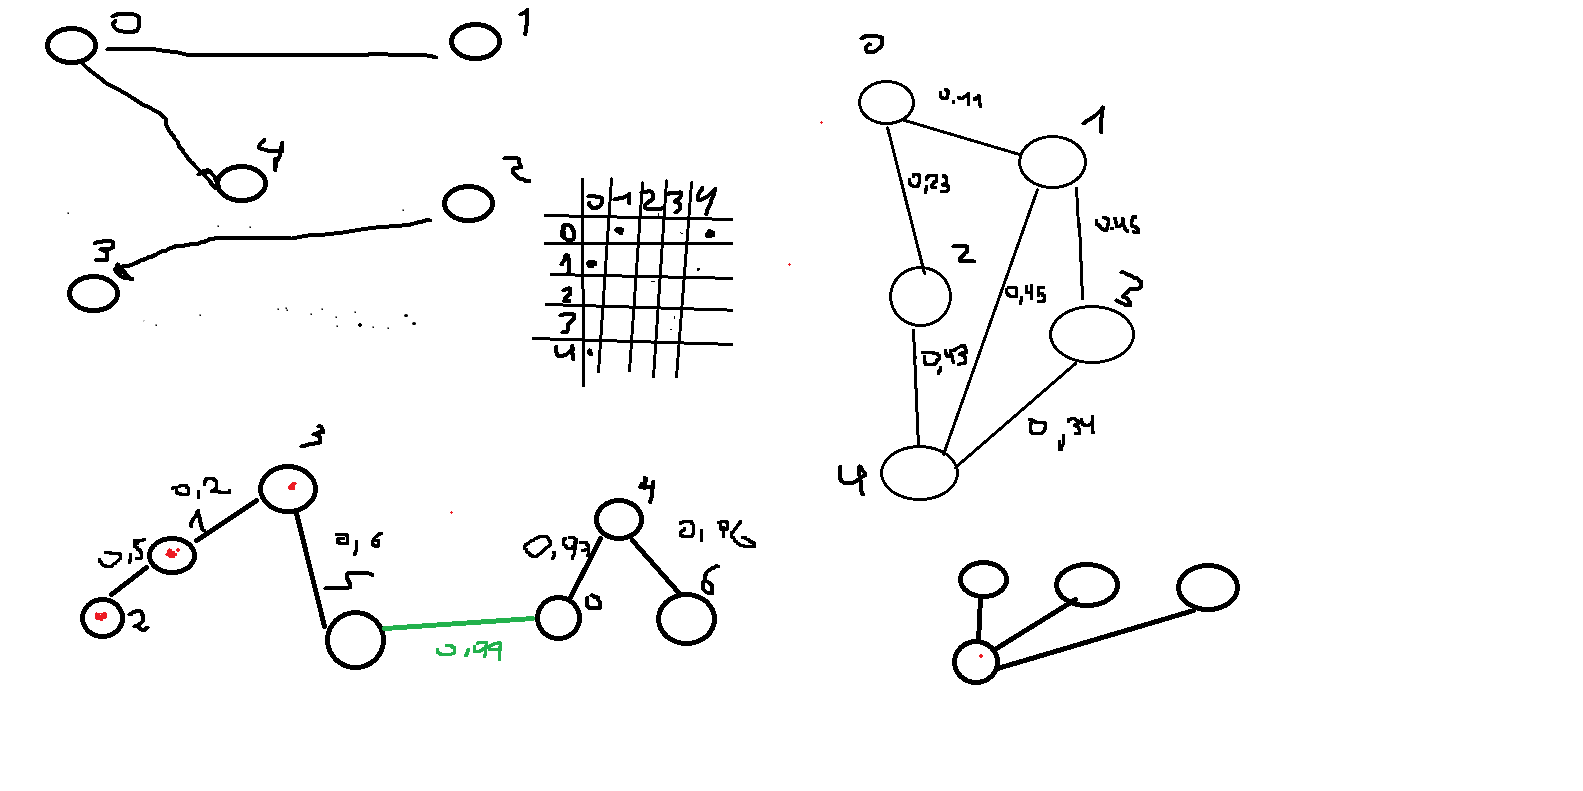 0
1
4
2
3
0 1 2 3 4
0
1
2
3
4
0
0.11
1
0,23
2
0.45
0,45
3
0,43
0,34
4
3
0,2
1
0,5
2
0,6
5
0,99
0,97
4
0
6